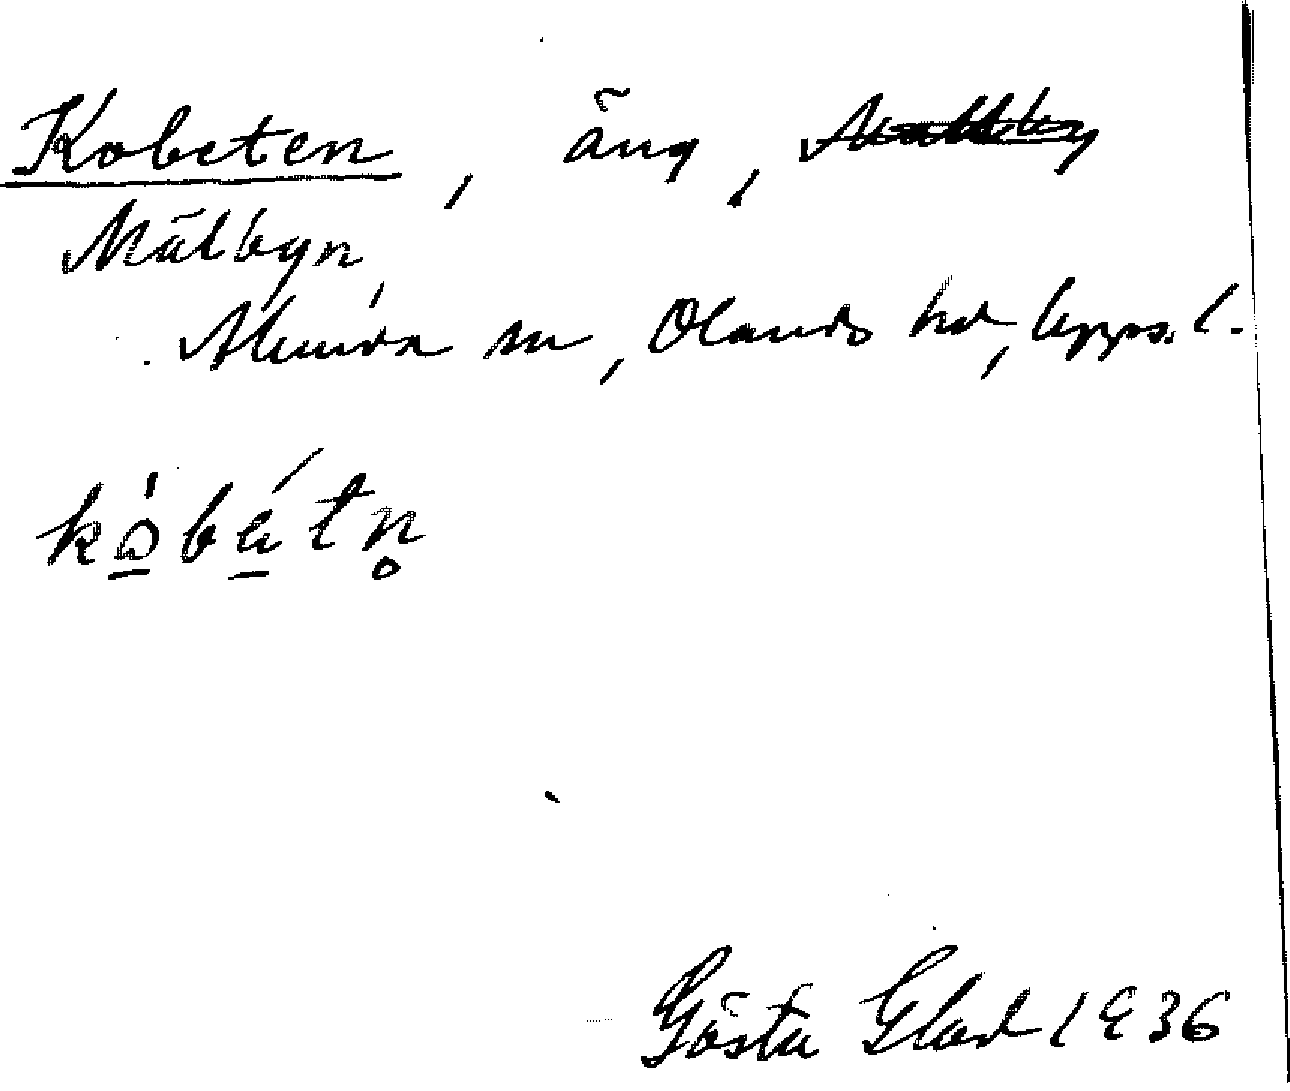 Kobeten, äng,
Mälbyn,
Alunda sn, Olands hd, Upps. l.
kòbétn̥
Gösta Glad 1936